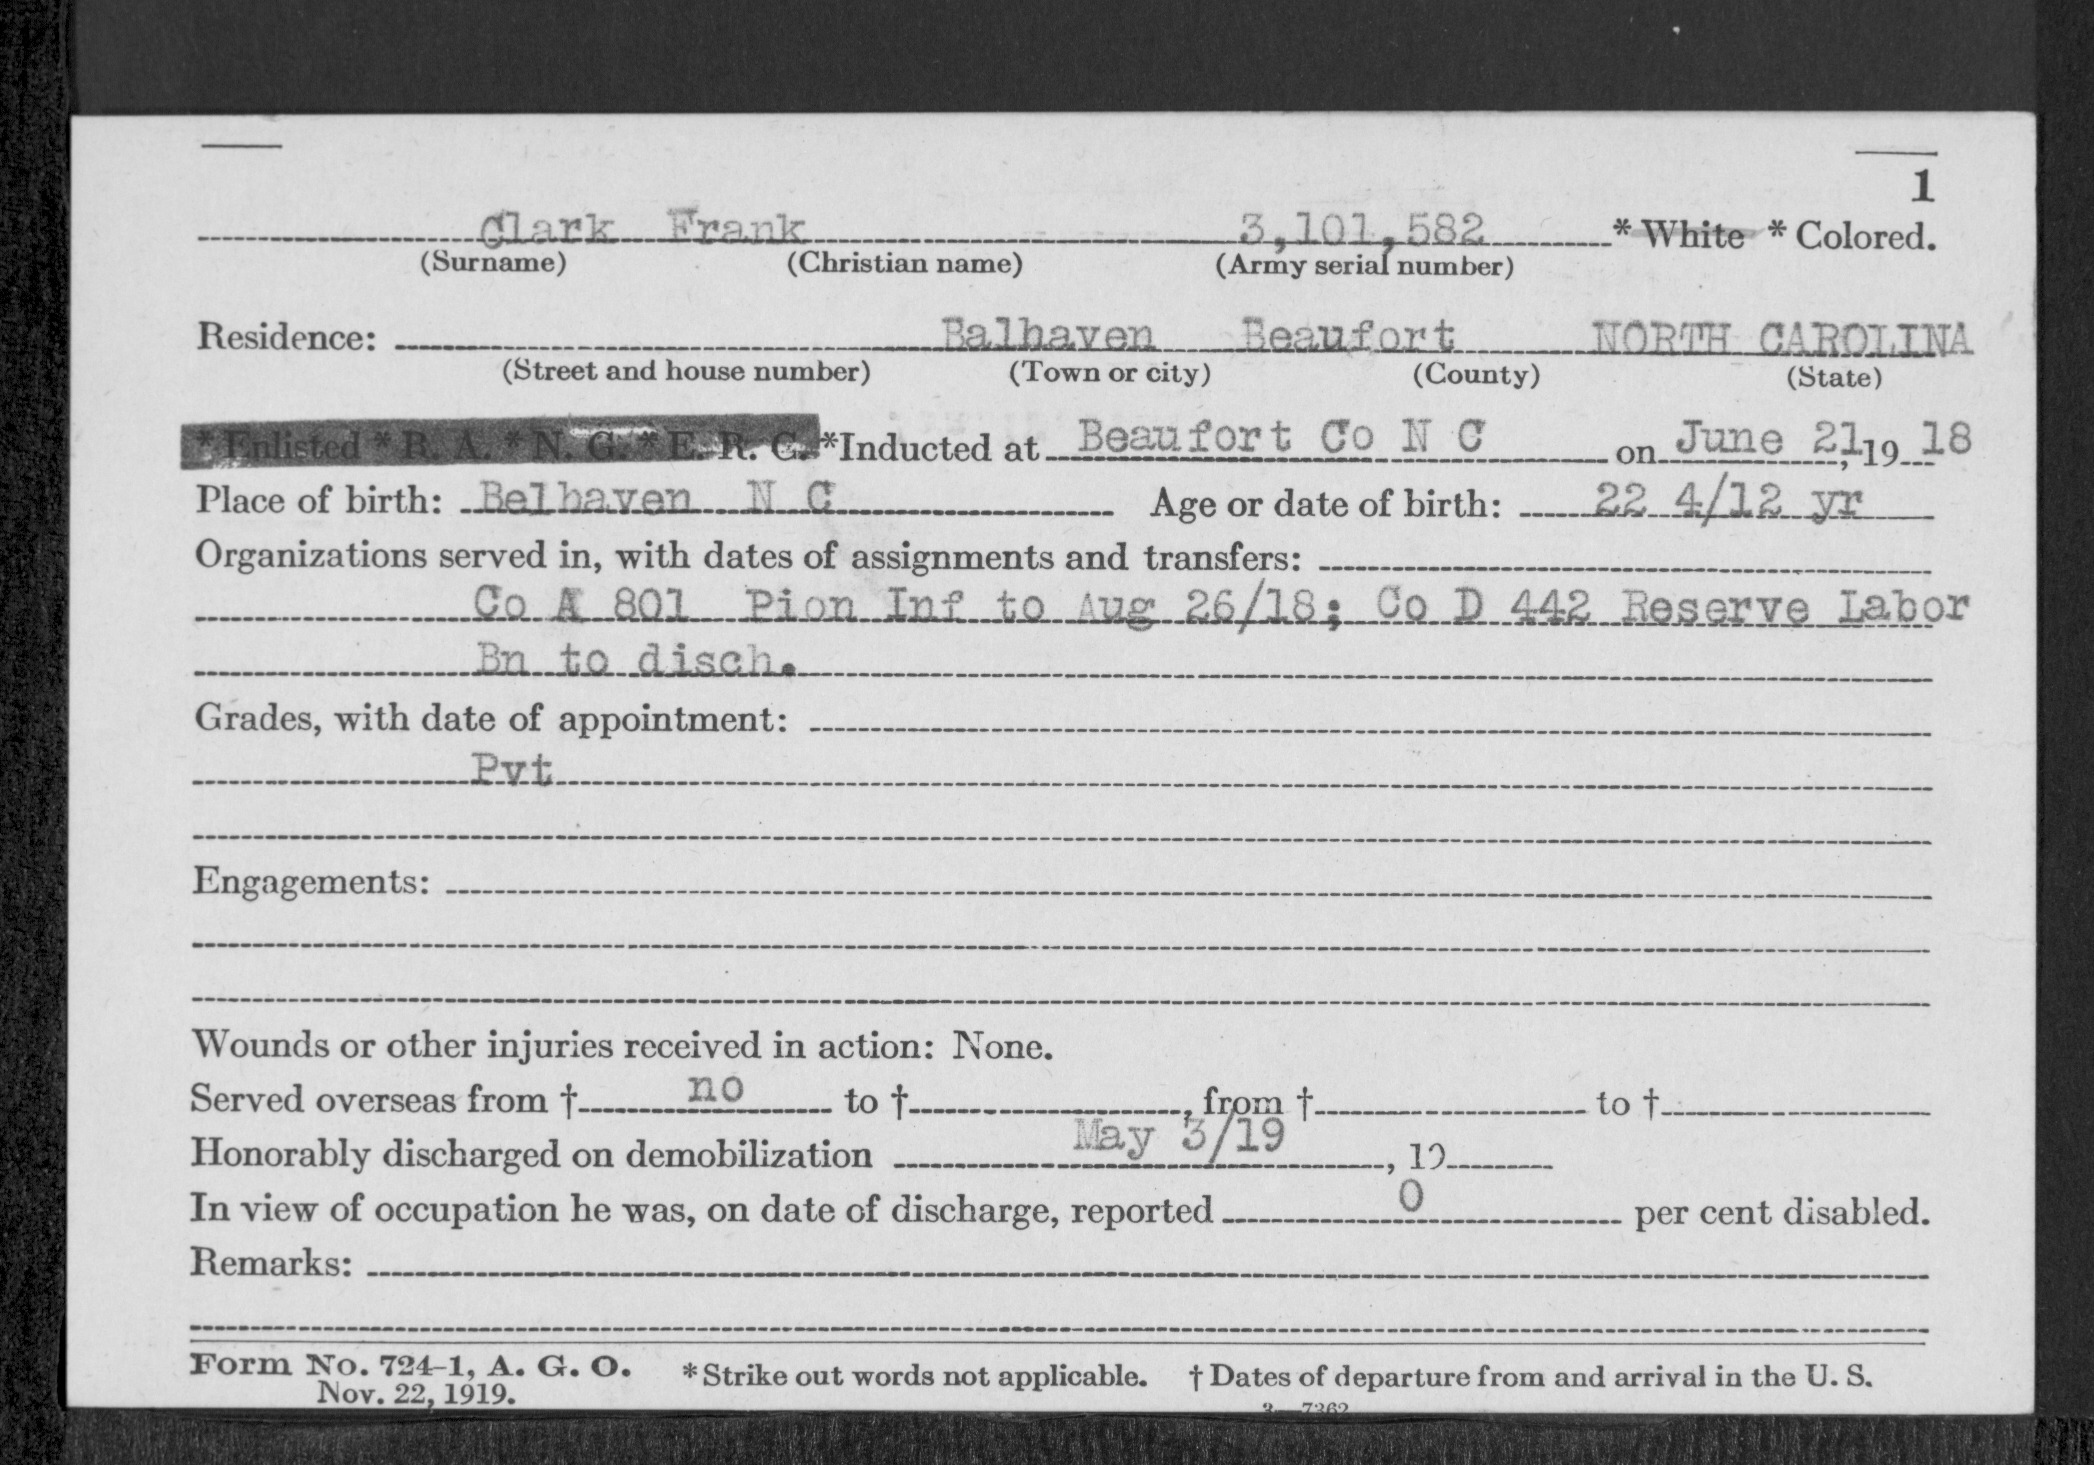 1
Clark Frank 3,101,582 * White * Colored.
(Surname) (Christian name) (Army serial number)
Residence: Balhaven Beaufort NORTH CAROLINA
(Street and house number) (Town or city) (County) (State)
* Enlisted * R. A. * N. G. * E. R. C. *Inducted at Beaufort Co N C on June 21, 19 18
Place of birth: Belhaven N C Age or date of birth: 22 4/12 yr
Organizations served in, with dates of assignments and transfers:
Co A 801 Pion Inf to Aug 26/18; Co D 442 Reserve Labor
Bn to disch.
Grades, with date of appointment:
Pvt
Engagements:
Wounds or other injuries received in action: None.
Served overseas from † no to †, from † to †
Honorably discharged on demobilization May 3/19, 19
In view of occupation he was, on date of discharge, reported 0 per cent disabled.
Remarks:
Form No. 724-1, A. G. O. * Strike out words not applicable. † Dates of departure from and arrival in the U. S.
Nov. 22, 1919.
3—7362